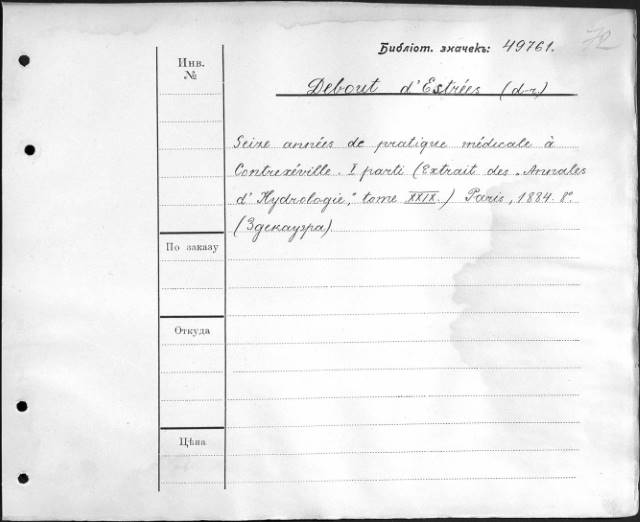 Библіот. значекъ: 49761.
Инв.
№
Debout d'Estrées (d-r)
Seize années de pratique médicale à
Contrexéville. I parti (Extrait des „Annales
d'Hydrologie," tome XXIX.) Paris, 1884. 8º.
(Здекауэра)
По заказу
Откуда
Цѣна